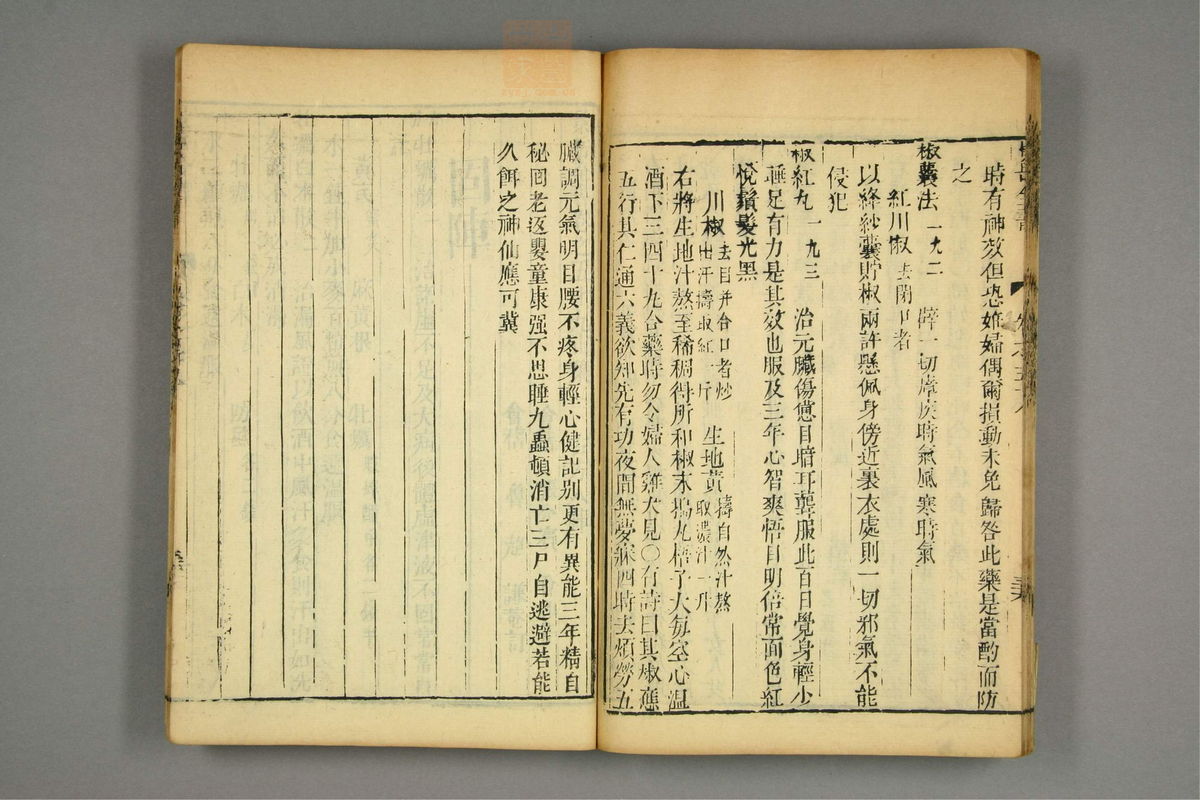 時有神效但恐姙婦偶爾損動未免歸咎此藥是當酌而防
之
椒囊法 一九二 辟一切瘴疾時氣風寒時氣
紅川椒 去閉口者
以絳紗囊貯椒兩許懸佩身傍近裏衣處則一切邪氣不能
侵犯
椒紅丸 一九三 治元臟傷憊目暗耳聾服此百日覺身輕少
睡足有力是其效也服及三年心智爽悟目明倍常面色紅
悅鬚髮光黑
川椒 去目并合口者炒出汗擣取紅一斤 生地黃 擣自然汁熬取濃汁一斤
右將生地汁熬至稀稠得所和椒末搗丸梧子大每空心溫
酒下三四十丸合藥時勿令婦人雞犬見○有詩曰其椒應
五行其仁通六義欲知先有功夜間無夢寐四時去煩勞五
臟調元氣明目腰不疼身輕心健記別更有異能三年精自
秘囘老返嬰童康强不思睡九蟲頓消亡三尸自逃避若能
久餌之神仙應可冀